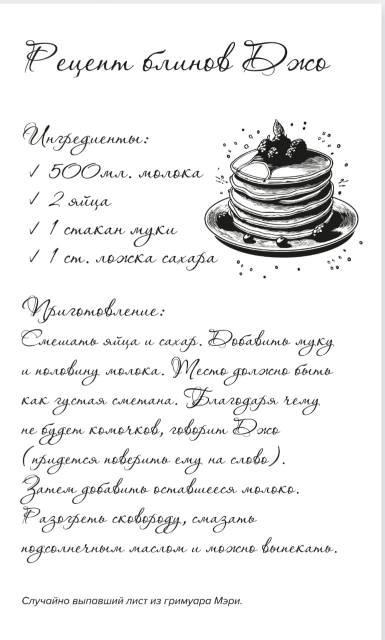 Рецепт блинов Джо
Ингредиенты:
✓ 500мл. молока
✓ 2 яйца
✓ 1 стакан муки
✓ 1 ст. ложка сахара
Приготовление:
Смешать яйца и сахар. Добавить муку
и половину молока. Тесто должно быть
как густая сметана. Благодаря чему
не будет комочков, говорит Джо
(придется поверить ему на слово).
Затем добавить оставшееся молоко.
Разогреть сковороду, смазать
подсолнечным маслом и можно выпекать.
Случайно выпавший лист из гримуара Мэри.